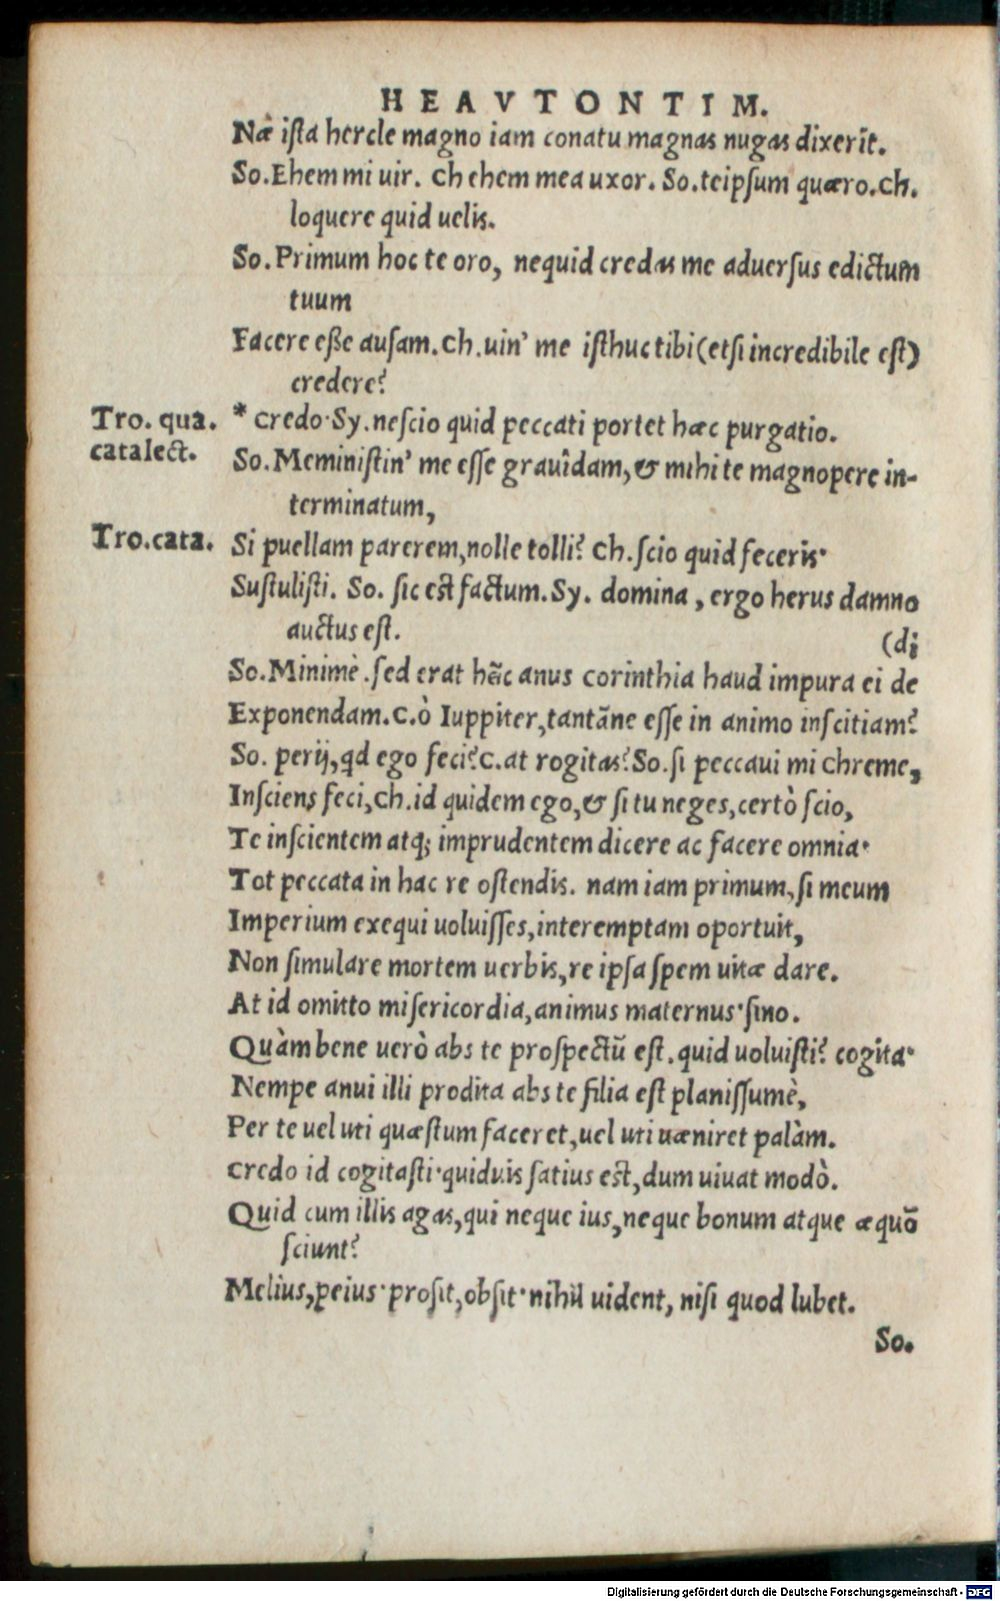 HEAVTONTIM.
Næ ista hercle magno iam conatu magnas nugas dixerit.
So.Ehem mi uir. Ch ehem mea uxor. So.teipsum quæro.Ch.
loquere quid uelis.
So.Primum hoc te oro, nequid credas me aduersus edictum
tuum
Facere eße ausam.Ch.uin' me isthuc tibi(etsi incredibile est)
credere?
Tro. qua. * Credo·Sy.nescio quid peccati portet hæc purgatio.
catalect.
So.Meministin' me esse grauîdam,& mihi te magnopere in-
terminatum,
Tro.cata. Si puellam parerem,nolle tolli? Ch.scio quid feceris·
Sustulisti. So. sic est factum.Sy. domina , ergo herus damno
auctus est.
(di
So.Minimè.sed erat hĩc anus corinthia haud impura ei de
Exponendam.C.ò Iuppiter,tantãne esse in animo inscitiam?
So. perij,qd ego feci?C.at rogitas?So.si peccaui mi Chreme,
Insciens feci,Ch.id quidem ego,& si tu neges,certò scio,
Te inscientem atq; imprudentem dicere ac facere omnia·
Tot peccata in hac re ostendis. nam iam primum,si meum
Imperium exequi uoluisses,interemptam oportuit,
Non simulare mortem uerbis,re ipsa spem uitæ dare.
At id omitto misericordia,animus maternus·sino.
Quàm bene uerò abs te prospectũ est.quid uoluisti? cogita·
Nempe anui illi prodita abs te filia est planissumè,
Per te uel uti quæstum faceret,uel uti uæniret palàm.
Credo id cogitasti·quiduis satius est,dum uiuat modò.
Quid cum illis agas,qui neque ius,neque bonum atque æquõ
sciunt?
Melius,peius·prosit,obsit·nihil uident, nisi quod lubet.
So.
Digitalisierung gefördert durch die Deutsche Forschungsgemeinschaft - DFG